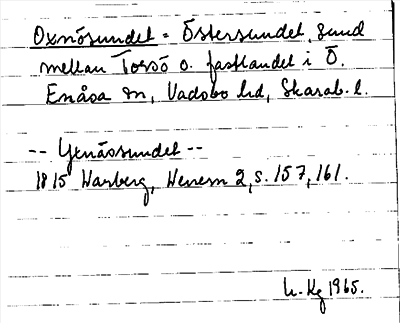 Oxnösundet = Östersundet, sund
mellan Torsö o. fastlandet i Ö.
Enåsa sn, Vadsbo hd, Skarab. l.
-- Yenässundet --
1815 Warberg, Wenern 2, s. 157, 161.
1965.